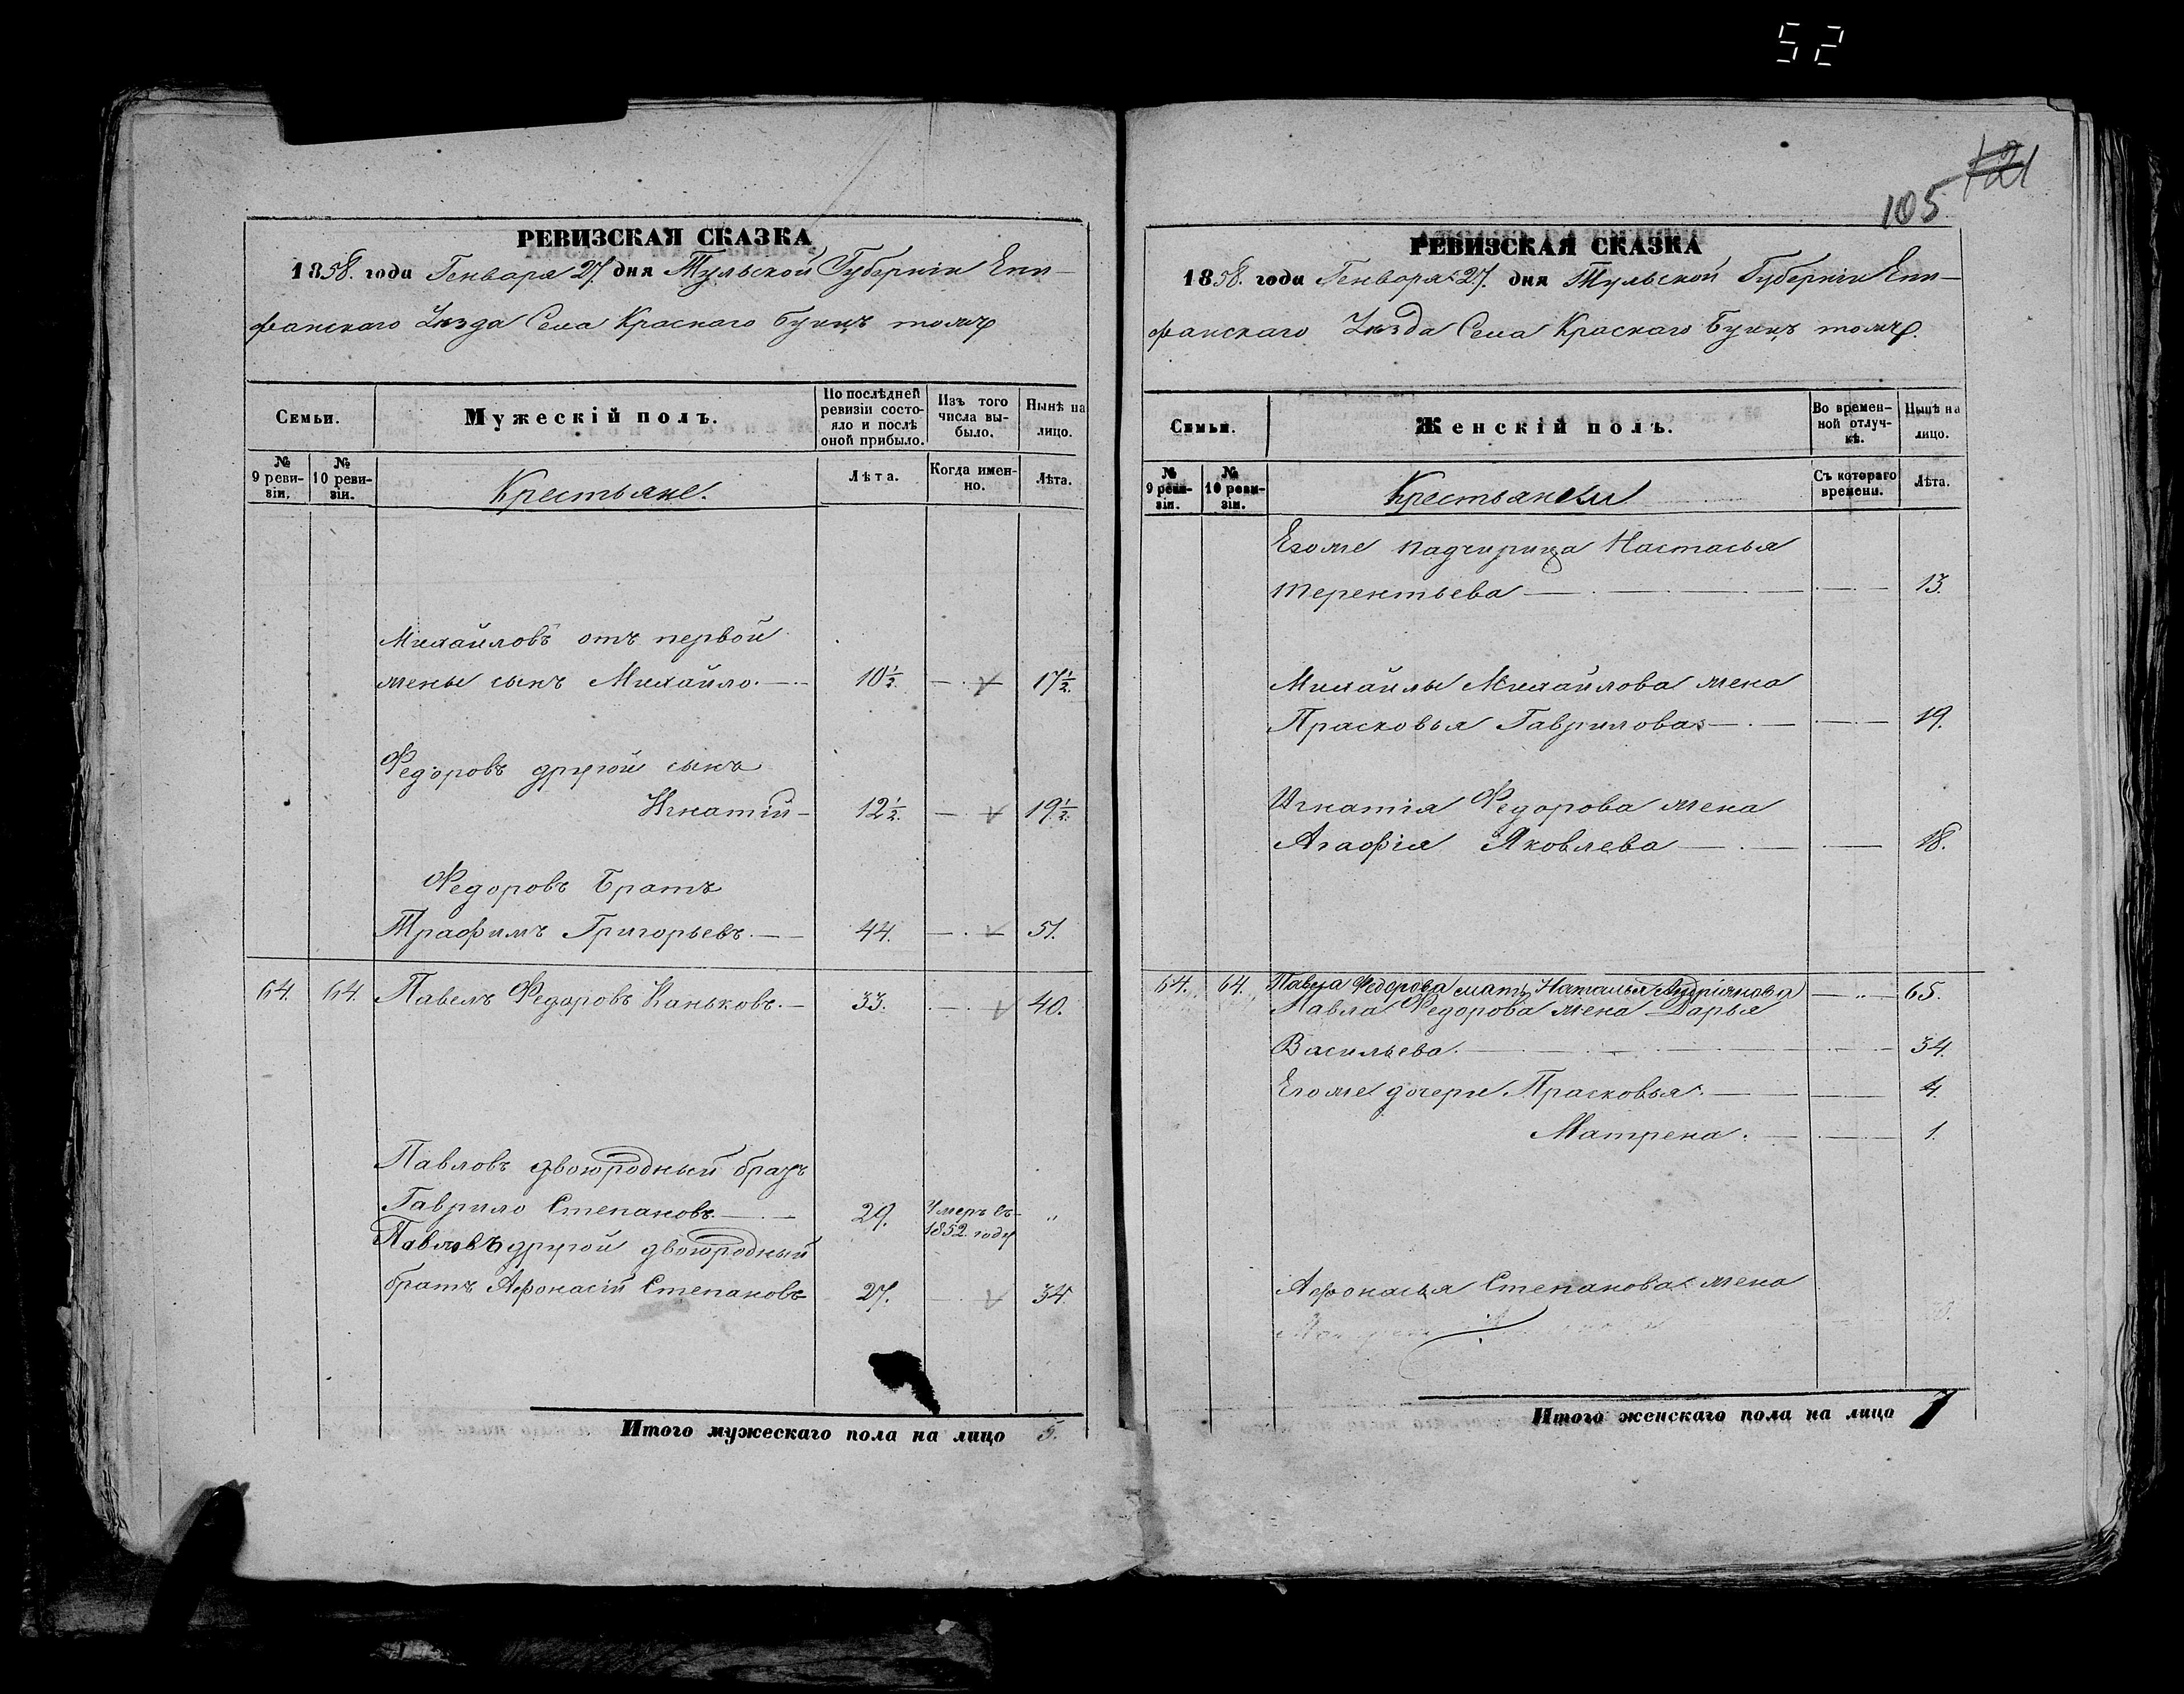 52
121
105
РЕВИЗСКАЯ СКАЗКА
1858. года Генваря 27. дня Тульской Губерніи Епи-
фанскаго Уѣзда Села Краснаго Буицъ тожъ
Семьи.
Мужескій полъ.
По послѣдней ревизіи состояло и послѣ оной прибыло.
Изъ того числа выбыло.
Нынѣ на лицо.
№ 9 ревизіи.
№ 10 ревизіи.
Крестьяне.
Лѣта.
Когда именно.
Лѣта.
Михайловъ отъ первой
жены сынъ Михайло. 10½. 17½.
Федоровъ другой сынъ
Игнатій 12½. 19½.
Федоровъ Братъ
Трофимъ Григорьевъ. 44. 51.
64. 64. Павелъ Федоровъ Каньковъ. 33. 40.
Павловъ двоюродный братъ
Гаврило Степановъ 29. Умеръ въ 1852. году „
Павловъ другой двоюродный
братъ Афонасій Степановъ 27. 34.
Итого мужескаго пола на лицо 5.
РЕВИЗСКАЯ СКАЗКА
1858. года Генваря 27. дня Тульской Губерніи Епи-
фанскаго Уѣзда Села Краснаго Буицъ тожъ.
Семьи.
Женскій полъ.
Во временной отлучкѣ.
Нынѣ на лицо.
№ 9 ревизіи.
№ 10 ревизіи.
Крестьянки
Съ котораго времени.
Лѣта.
Егоже падчирица Настасья
Терентьева 13.
Михайлы Михайлова жена
Прасковья Гаврилова 19.
Игнатія Федорова жена
Агафія Яковлева 18.
64. 64. Павла Федорова мать Наталья Андріянова 65.
Павла Федорова жена Дарья
Васильева. 34.
Егоже дочери Прасковья. 4.
Матрена. 1.
Афонасья Степанова жена
Итого женскаго пола на лицо 7